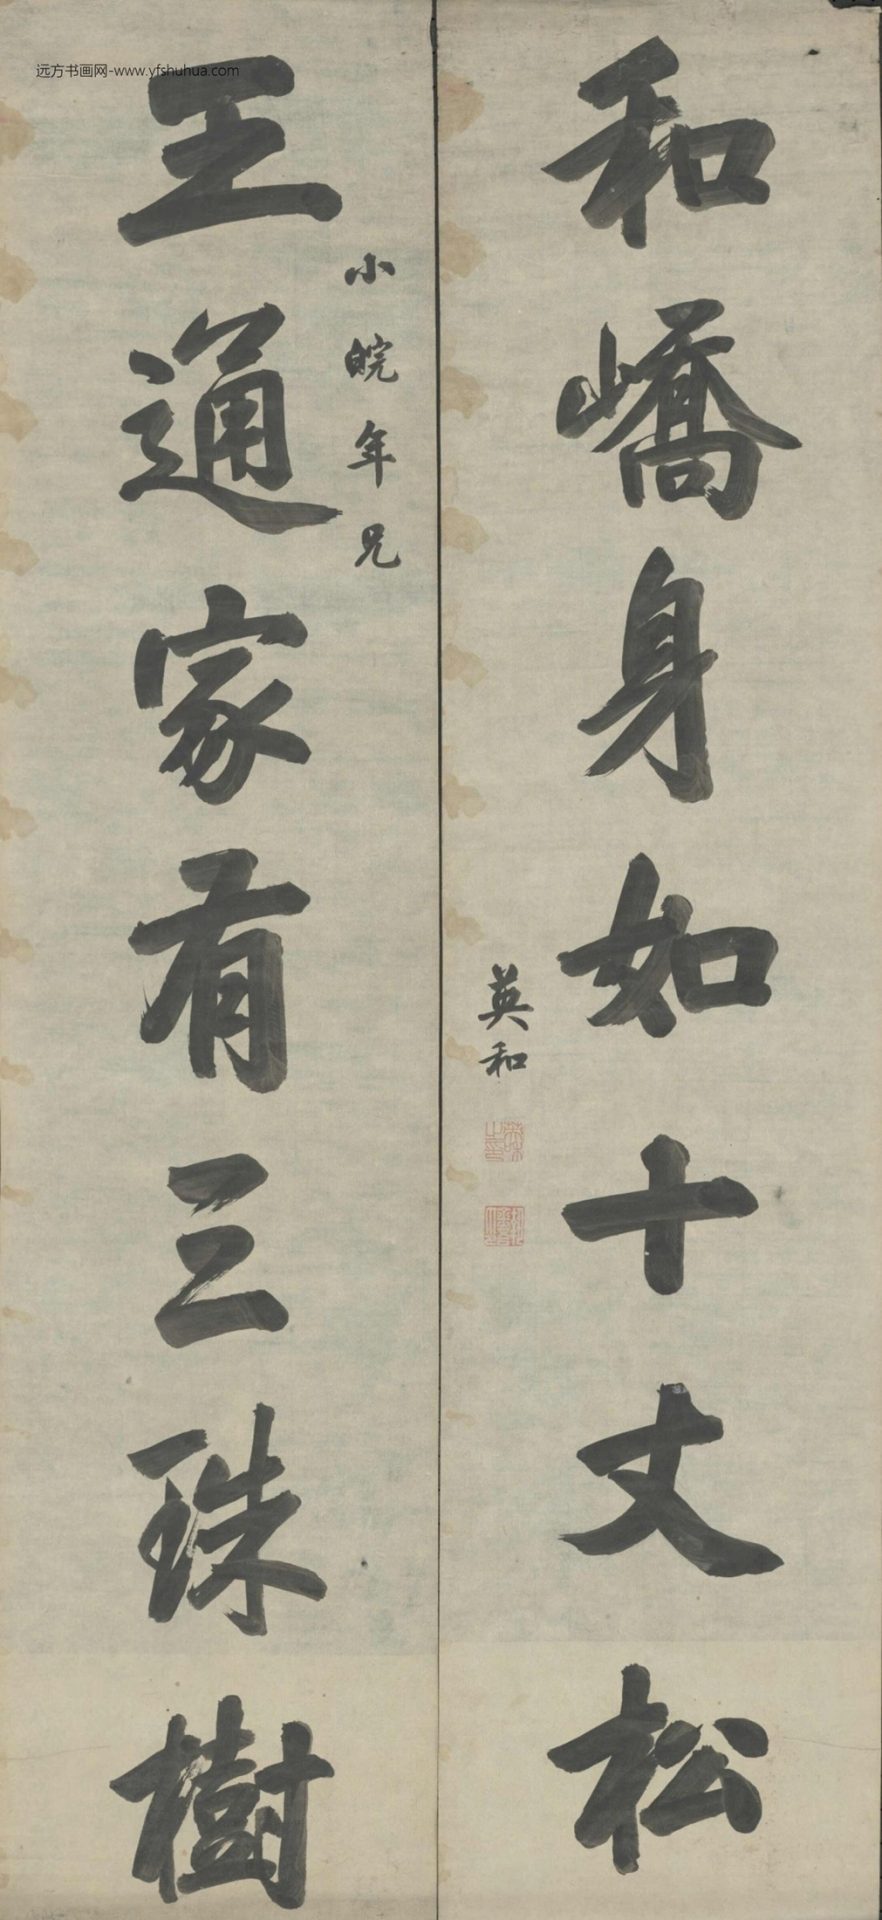 远方书画网-www.yfshuhua.com
和嶠身如十丈松
英和
小皖年兄
王通家有三珠樹